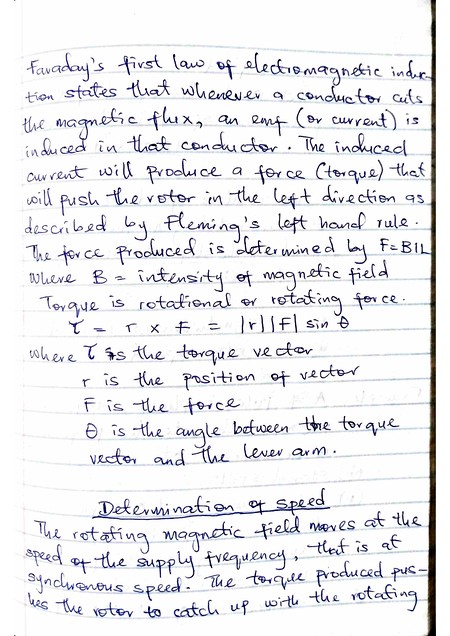 Faraday's first law of electromagnetic induc-
tion states that whenever a conductor cuts
the magnetic flux, an emf (or current) is
induced in that conductor. The induced
current will produce a force (torque) that
will push the rotor in the left direction as
described by Fleming's left hand rule.
The force produced is determined by F=BIL
where B = intensity of magnetic field
Torque is rotational or rotating force.
τ = r × F = |r||F| sin θ
where τ is the torque vector
r is the position of vector
F is the force
θ is the angle between the torque
vector and the lever arm.
Determination of speed
The rotating magnetic field moves at the
speed of the supply frequency, that is at
synchronous speed. The torque produced pus-
hes the rotor to catch up with the rotating